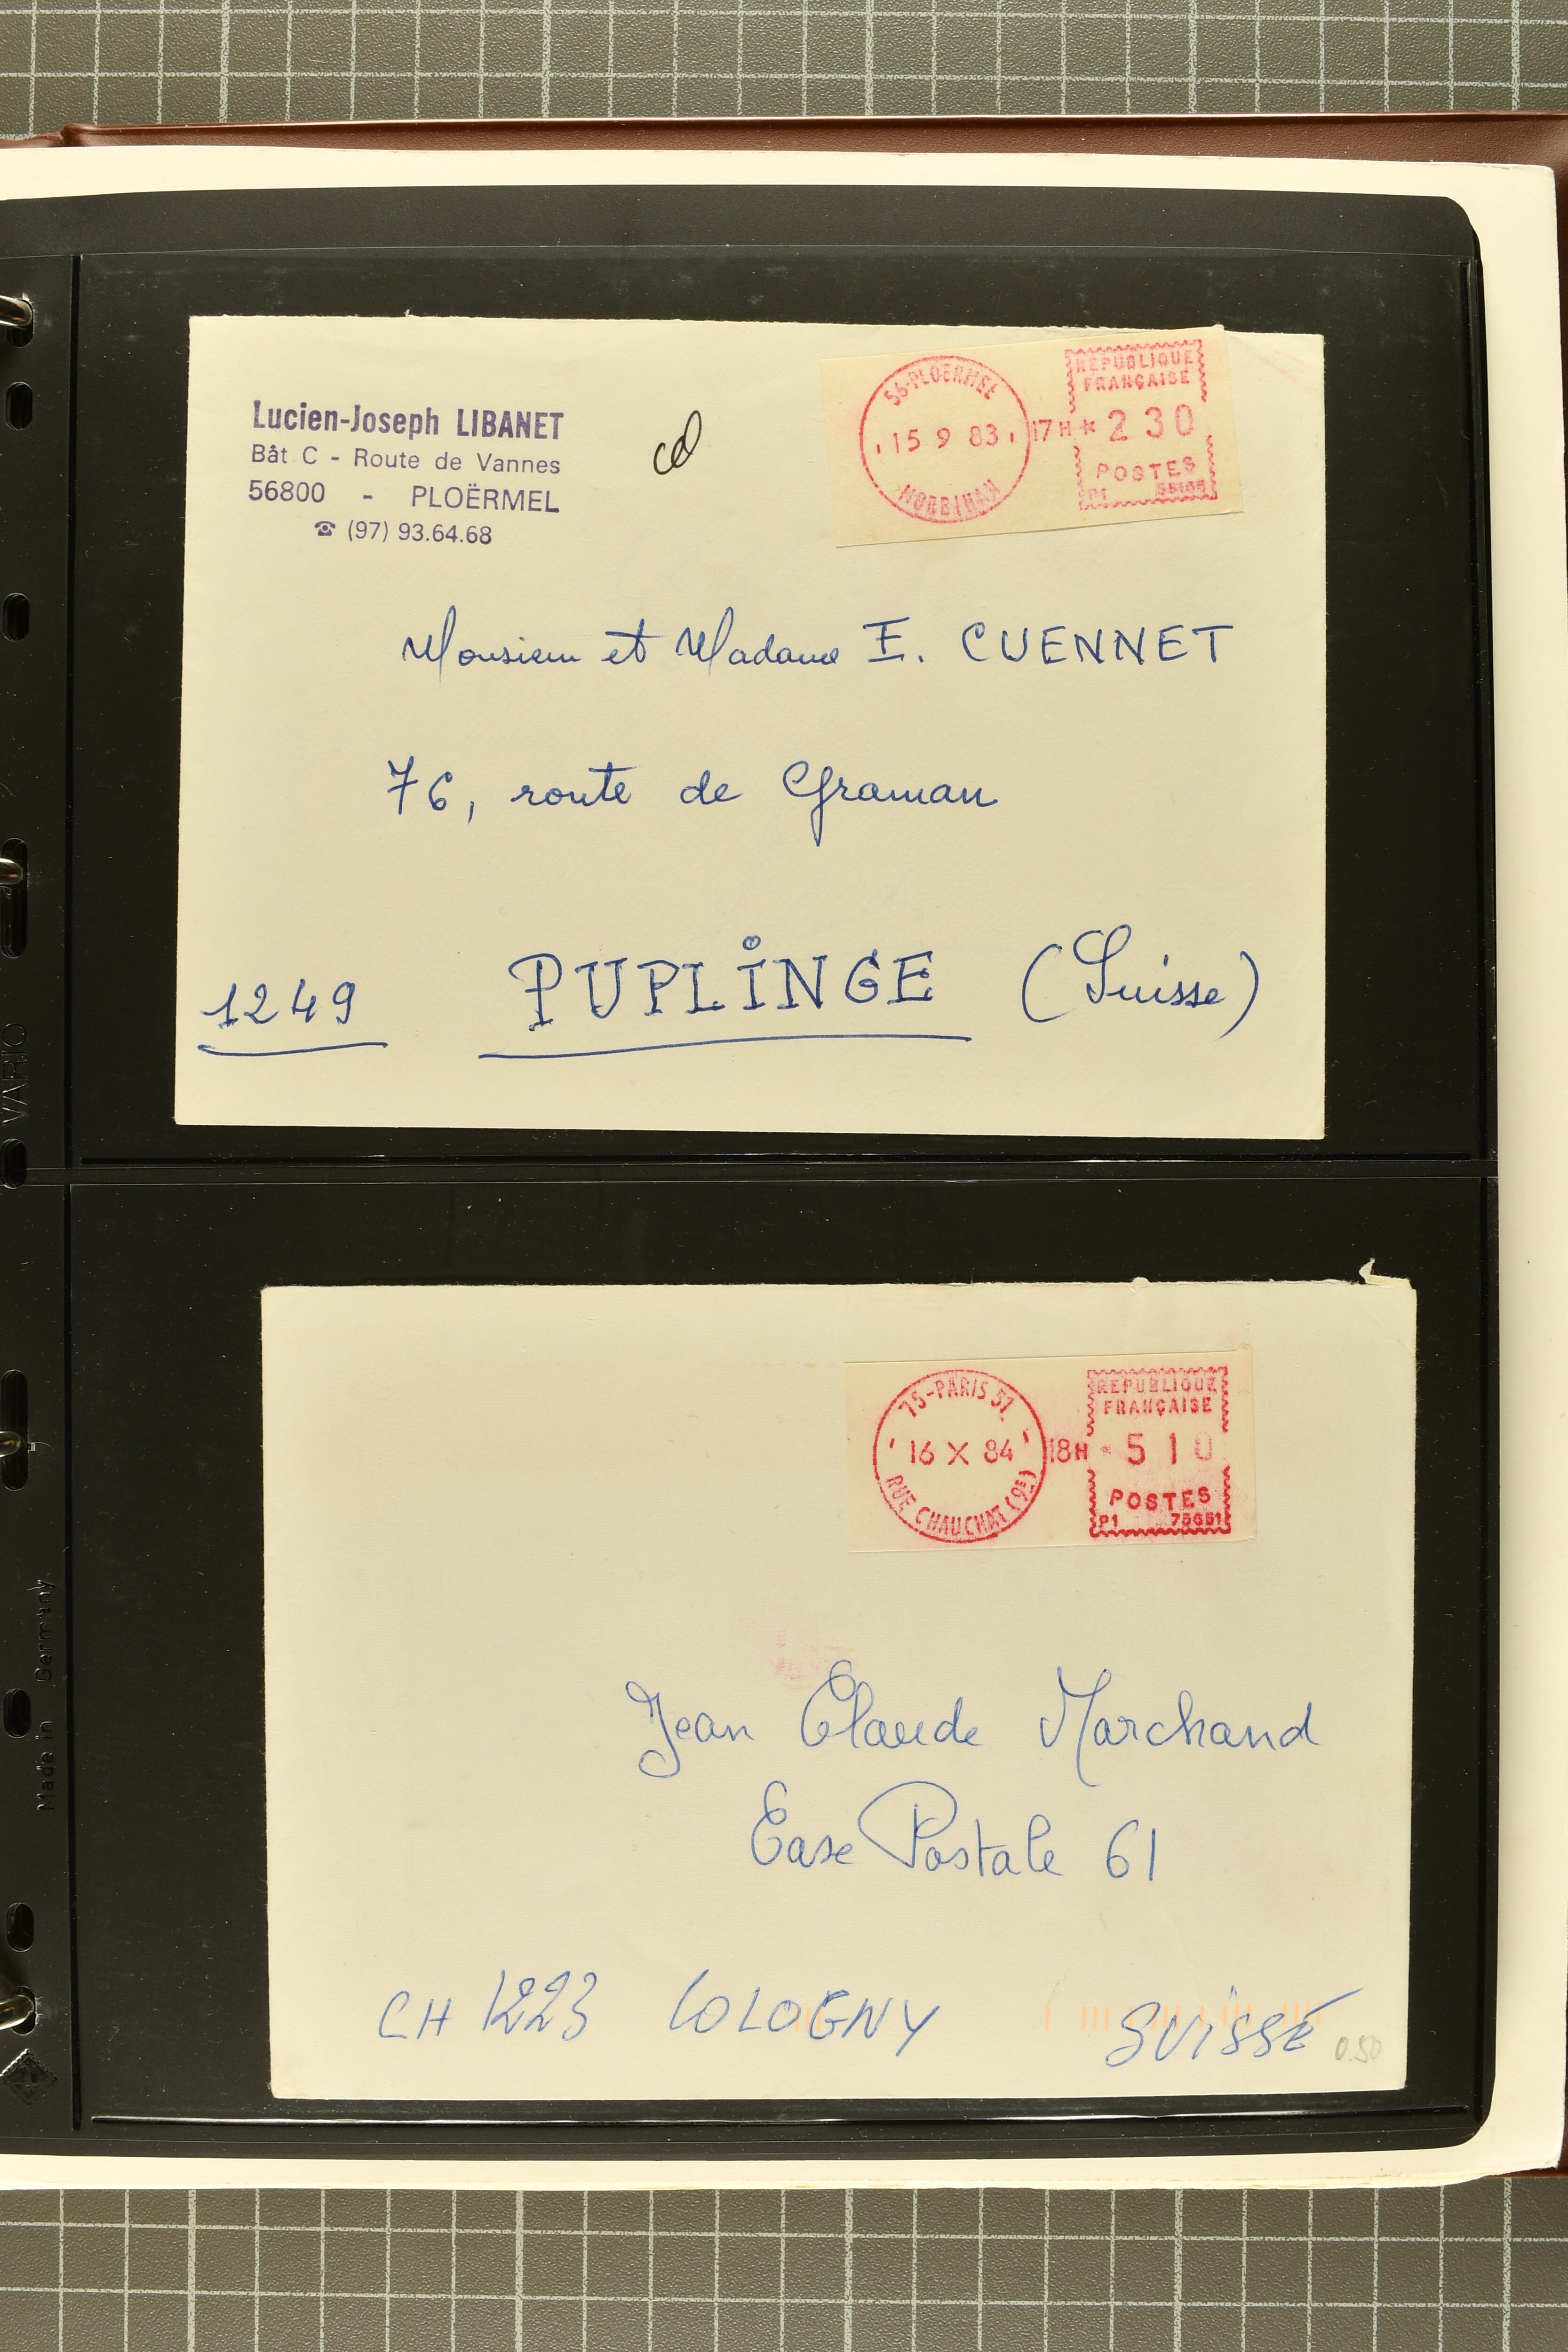 Lucien-Joseph LIBANET
Bât C - Route de Vannes
56800 - PLOËRMEL
☎ (97) 93.64.68
cd
56-PLOERMEL
15 9 83
MORBIHAN
17H
REPUBLIQUE
FRANÇAISE
* 2 30
POSTES
P1
Monsieur et Madame E. CUENNET
76, route de Graman
1249 PUPLINGE (Suisse)
75-PARIS 57
16 X 84
RUE CHAUCHAT (9E)
18H
REPUBLIQUE
FRANÇAISE
* 5 10
POSTES
P1 75651
Jean Claude Marchand
Case Postale 61
CH 1223 COLOGNY SUISSE
0.50
VARIO
Made in Germany